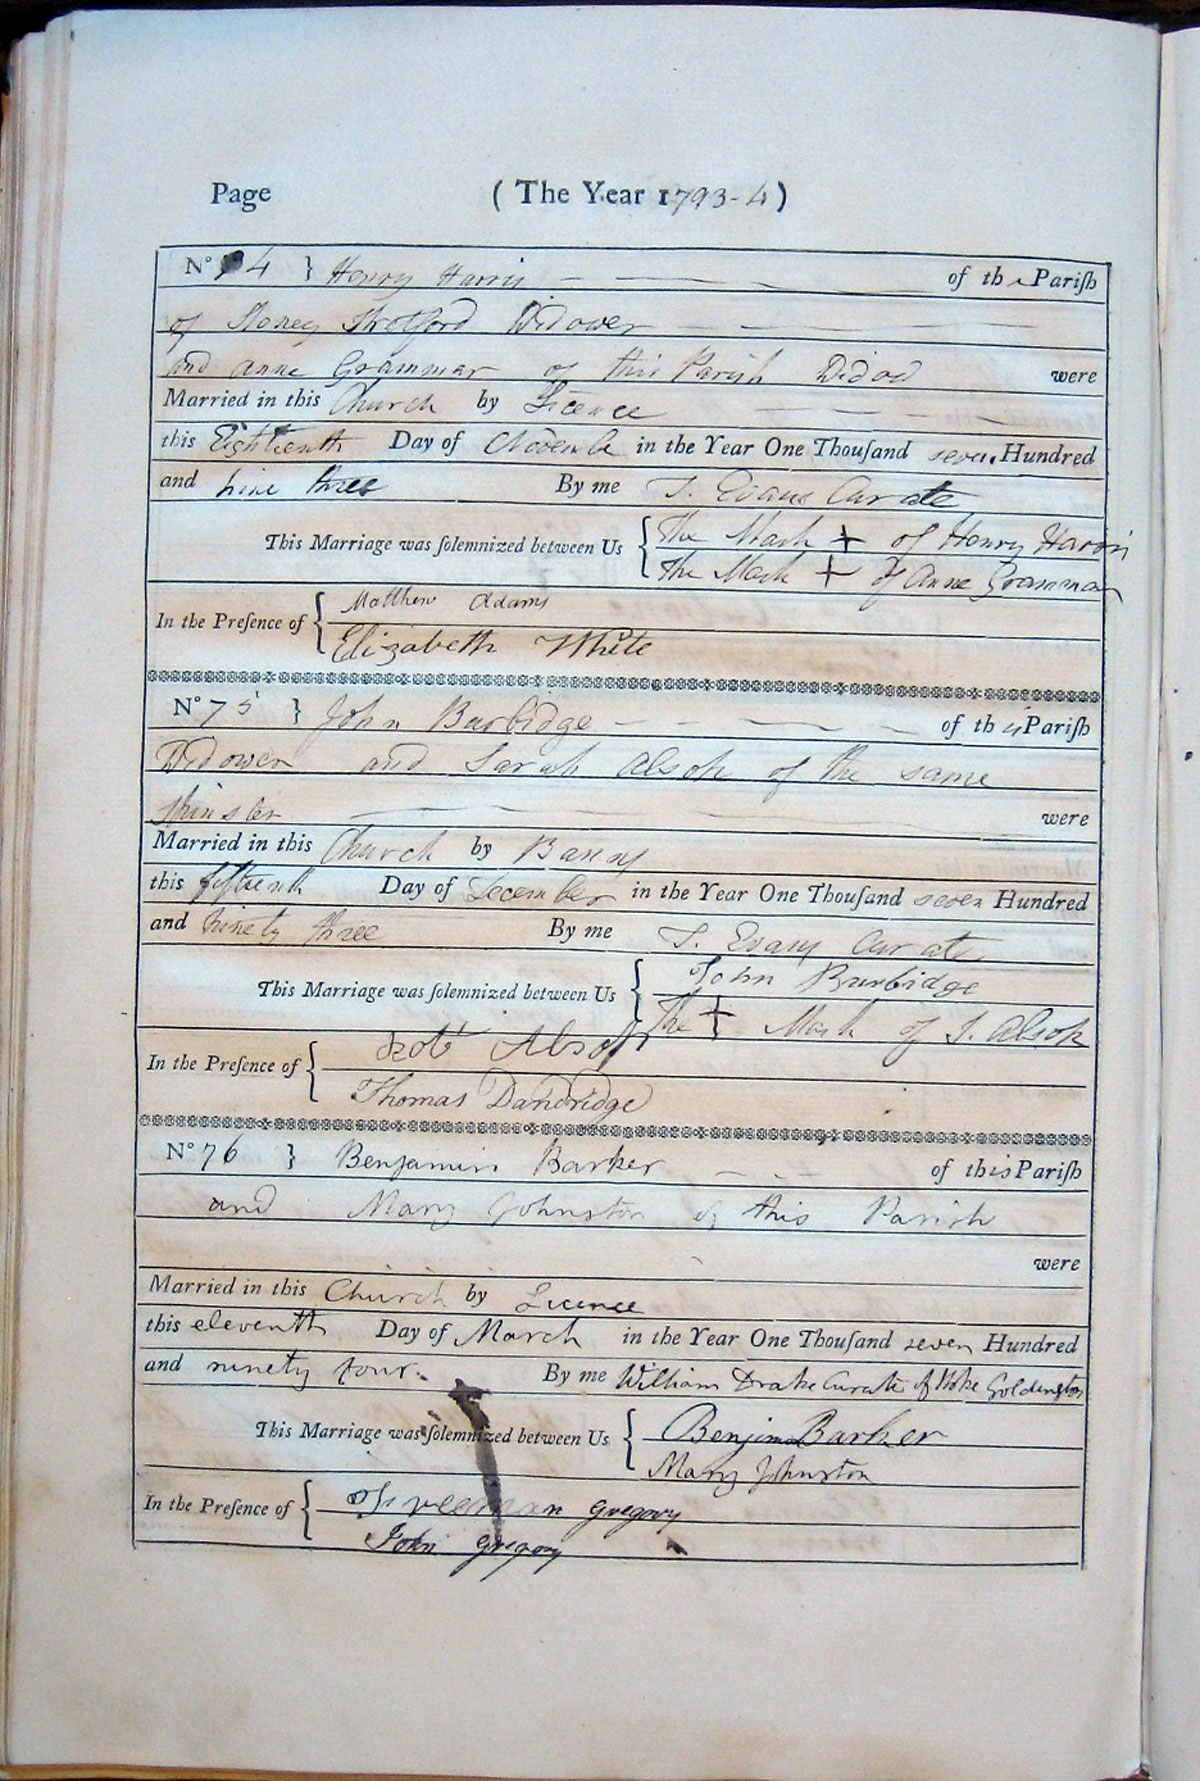 Page (The Year 1793-4)
No 4 } Henry Harris of the Pariſh
of Stoney Stratford Widower
and Anne Grammar of this Parish Widow were
Married in this Church by Licence
this Eighteenth Day of Novembe in the Year One Thouſand seven Hundred
and nine three By me T. Evans Curate
This Marriage was ſolemnized between Us { The Mark + of Henry Harris
The Mark + of Anne Grammar
In the Preſence of { Matthew Adams
Elizabeth White
No 75 } John Burbidge of this Pariſh
Widower and Sarah Alsop of the same
Spinster were
Married in this Church by Banns
this fifteenth Day of December in the Year One Thouſand seven Hundred
and ninety three By me T. Evans Curate
This Marriage was ſolemnized between Us { John Burbidge
The + Mark of S. Alsop
In the Preſence of { Robt Alsop
Thomas Dandridge
No 76 } Benjamin Barker of this Pariſh
and Mary Johnston of this Parish
were
Married in this Church by Licence
this eleventh Day of March in the Year One Thouſand seven Hundred
and ninety four. By me William Drake Curate of Stoke Goldington
This Marriage was ſolemnized between Us { Benjmn Barker
Mary Johnston
In the Preſence of { Freeman Gregory
John Gregory